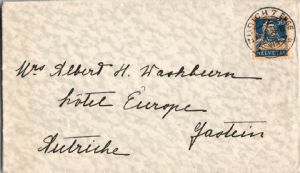 ZÜRICH 7
HELVETIA
Mrs Albert H. Washburn
hôtel Europe
Gastein
Autriche